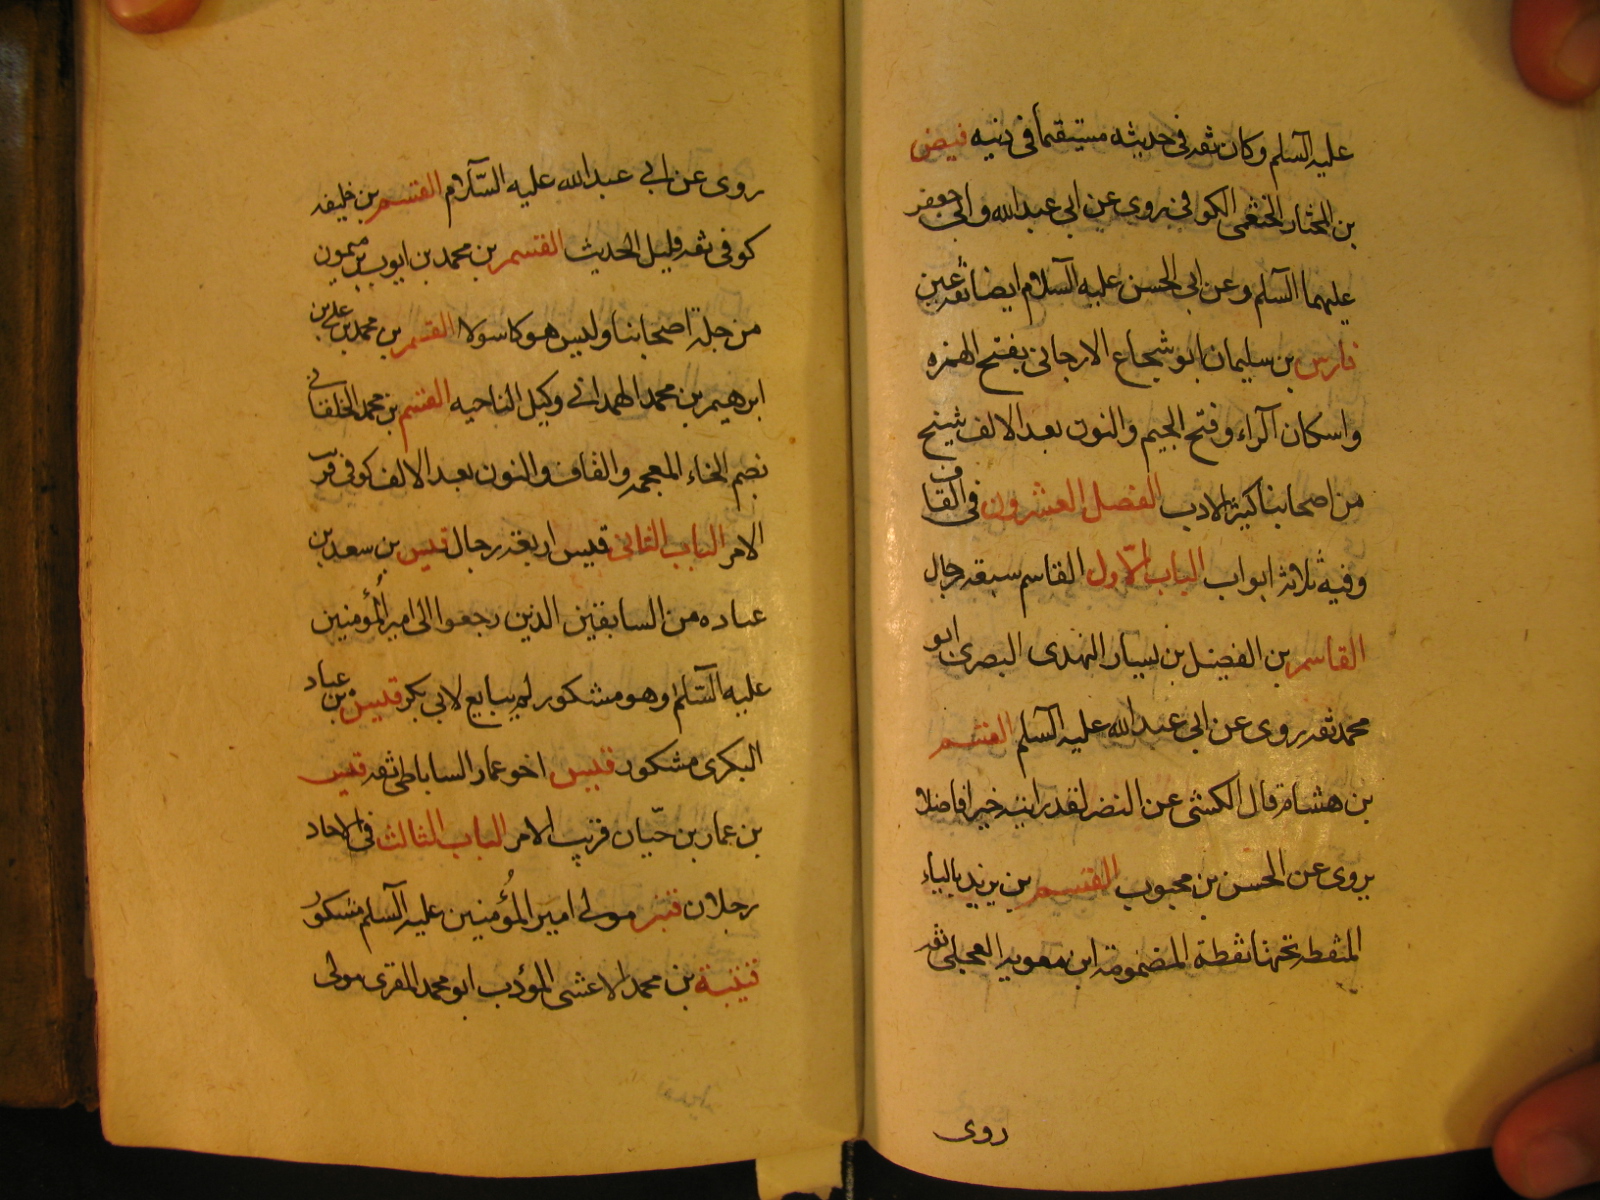 عليه السلم وكان ثقه في حديثه مستقيما في دينه فيض
بن المختار الخثعمى الكوفي يروى عن ابى عبدالله وابى جعفر
عليهما السلم وعن ابى الحسن عليه السلام ايضا ثقه عين
فارس بن سليمان ابو شجاع الارجانى بفتح الهمزه
واسكان الراء وفتح الجيم والنون بعد الالف شيخ
من اصحابنا كثير الادب الفصل العشرون في القاف
وفيه ثلاثة ابواب الباب الاول القاسم سبعه رجال
القاسم بن الفضيل بن يسار النهدى البصرى ابو
محمد ثقه روى عن ابى عبدالله عليه السلم القسم
بن هشام قال الكشى عن النضر لقد رايته خيرا فاضلا
يروى عن الحسن بن محبوب القسم بن يزيد بالياء
المنقطه تحتها نقطة المضمومة ابن معويه العجلى ثقه
روى
روى عن ابي عبدالله عليه السلام القسم بن خليفه
كوفى ثقه قليل الحديث القسم بن محمد بن ايوب بن ميمون
من جلة اصحابنا وليس هو كاسولا القسم بن محمد بن على بن
ابرهيم بن محمد الهمداني وكيل الناحيه القسم بن محمد الخلقاني
بضم الخاء المعجمه والقاف والنون بعد الالف كوفى قريب
الامر الباب الثانى قيس اربعة رجال قيس بن سعد بن
عباده من السابقين الذين رجعوا الى امير المؤمنين
عليه السلم وهو مشكور لم يبايع لابى بكر قيس بن عباد
البكرى مشكور قيس اخو عمار الساباطى ثقه قيس
بن عمار بن حيان قريب الامر الباب الثالث في الاحاد
رجلان قنبر مولى امير المؤمنين عليه السلم مشكور
قتيبة بن محمد الاعشى المؤدب ابو محمد المقرى مولى